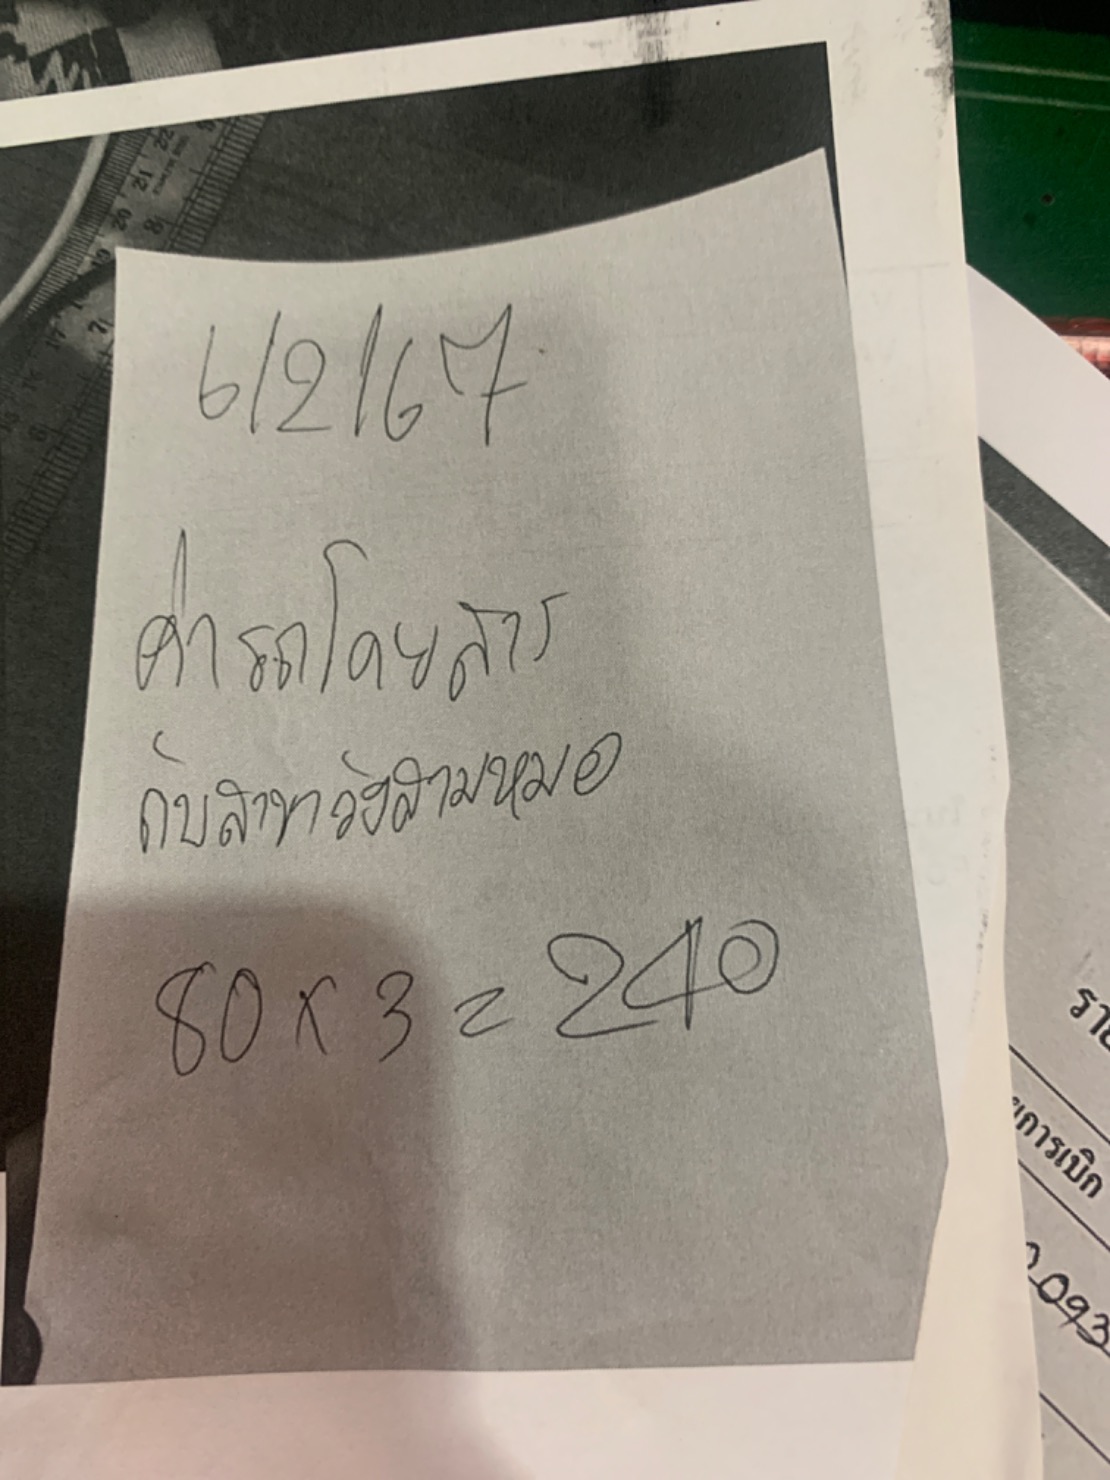 6/2/67
ค่ารถโดยสาร
กับสาขาวังสามหมอ
80 x 3 = 240
ยการเบิก
2093